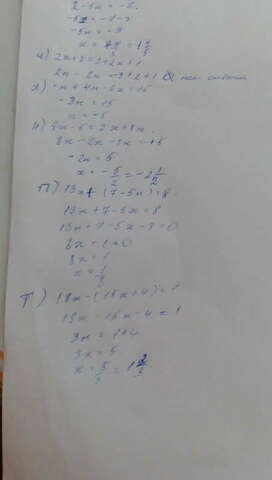 2-5x=-7
-5x=-7-2
-5x=-9
x=9/5=1 4/5
и) 2x+3=2+2x+1
2x-2x=-3+2+1
л) -x+4x-6x=15
-3x=15
x=-5
н) 8x-5=2x+8x
8x-2x-8x=+5
-2x=5
x=-5/2=-2 1/2
п) 13x+(7-5x)=8
13x+7-5x=8
13x+7-5x-8=0
8x-1=0
8x=1
x=1/8
т) 18x-(15x+4)=1
18x-15x-4=1
3x=1+4
3x=5
x=5/3=1 2/3